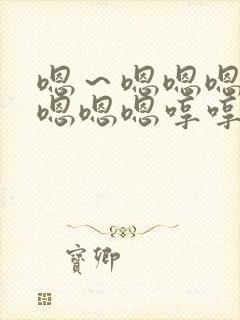 嗯～嗯嗯嗯
嗯嗯嗯哼哼
寳卿